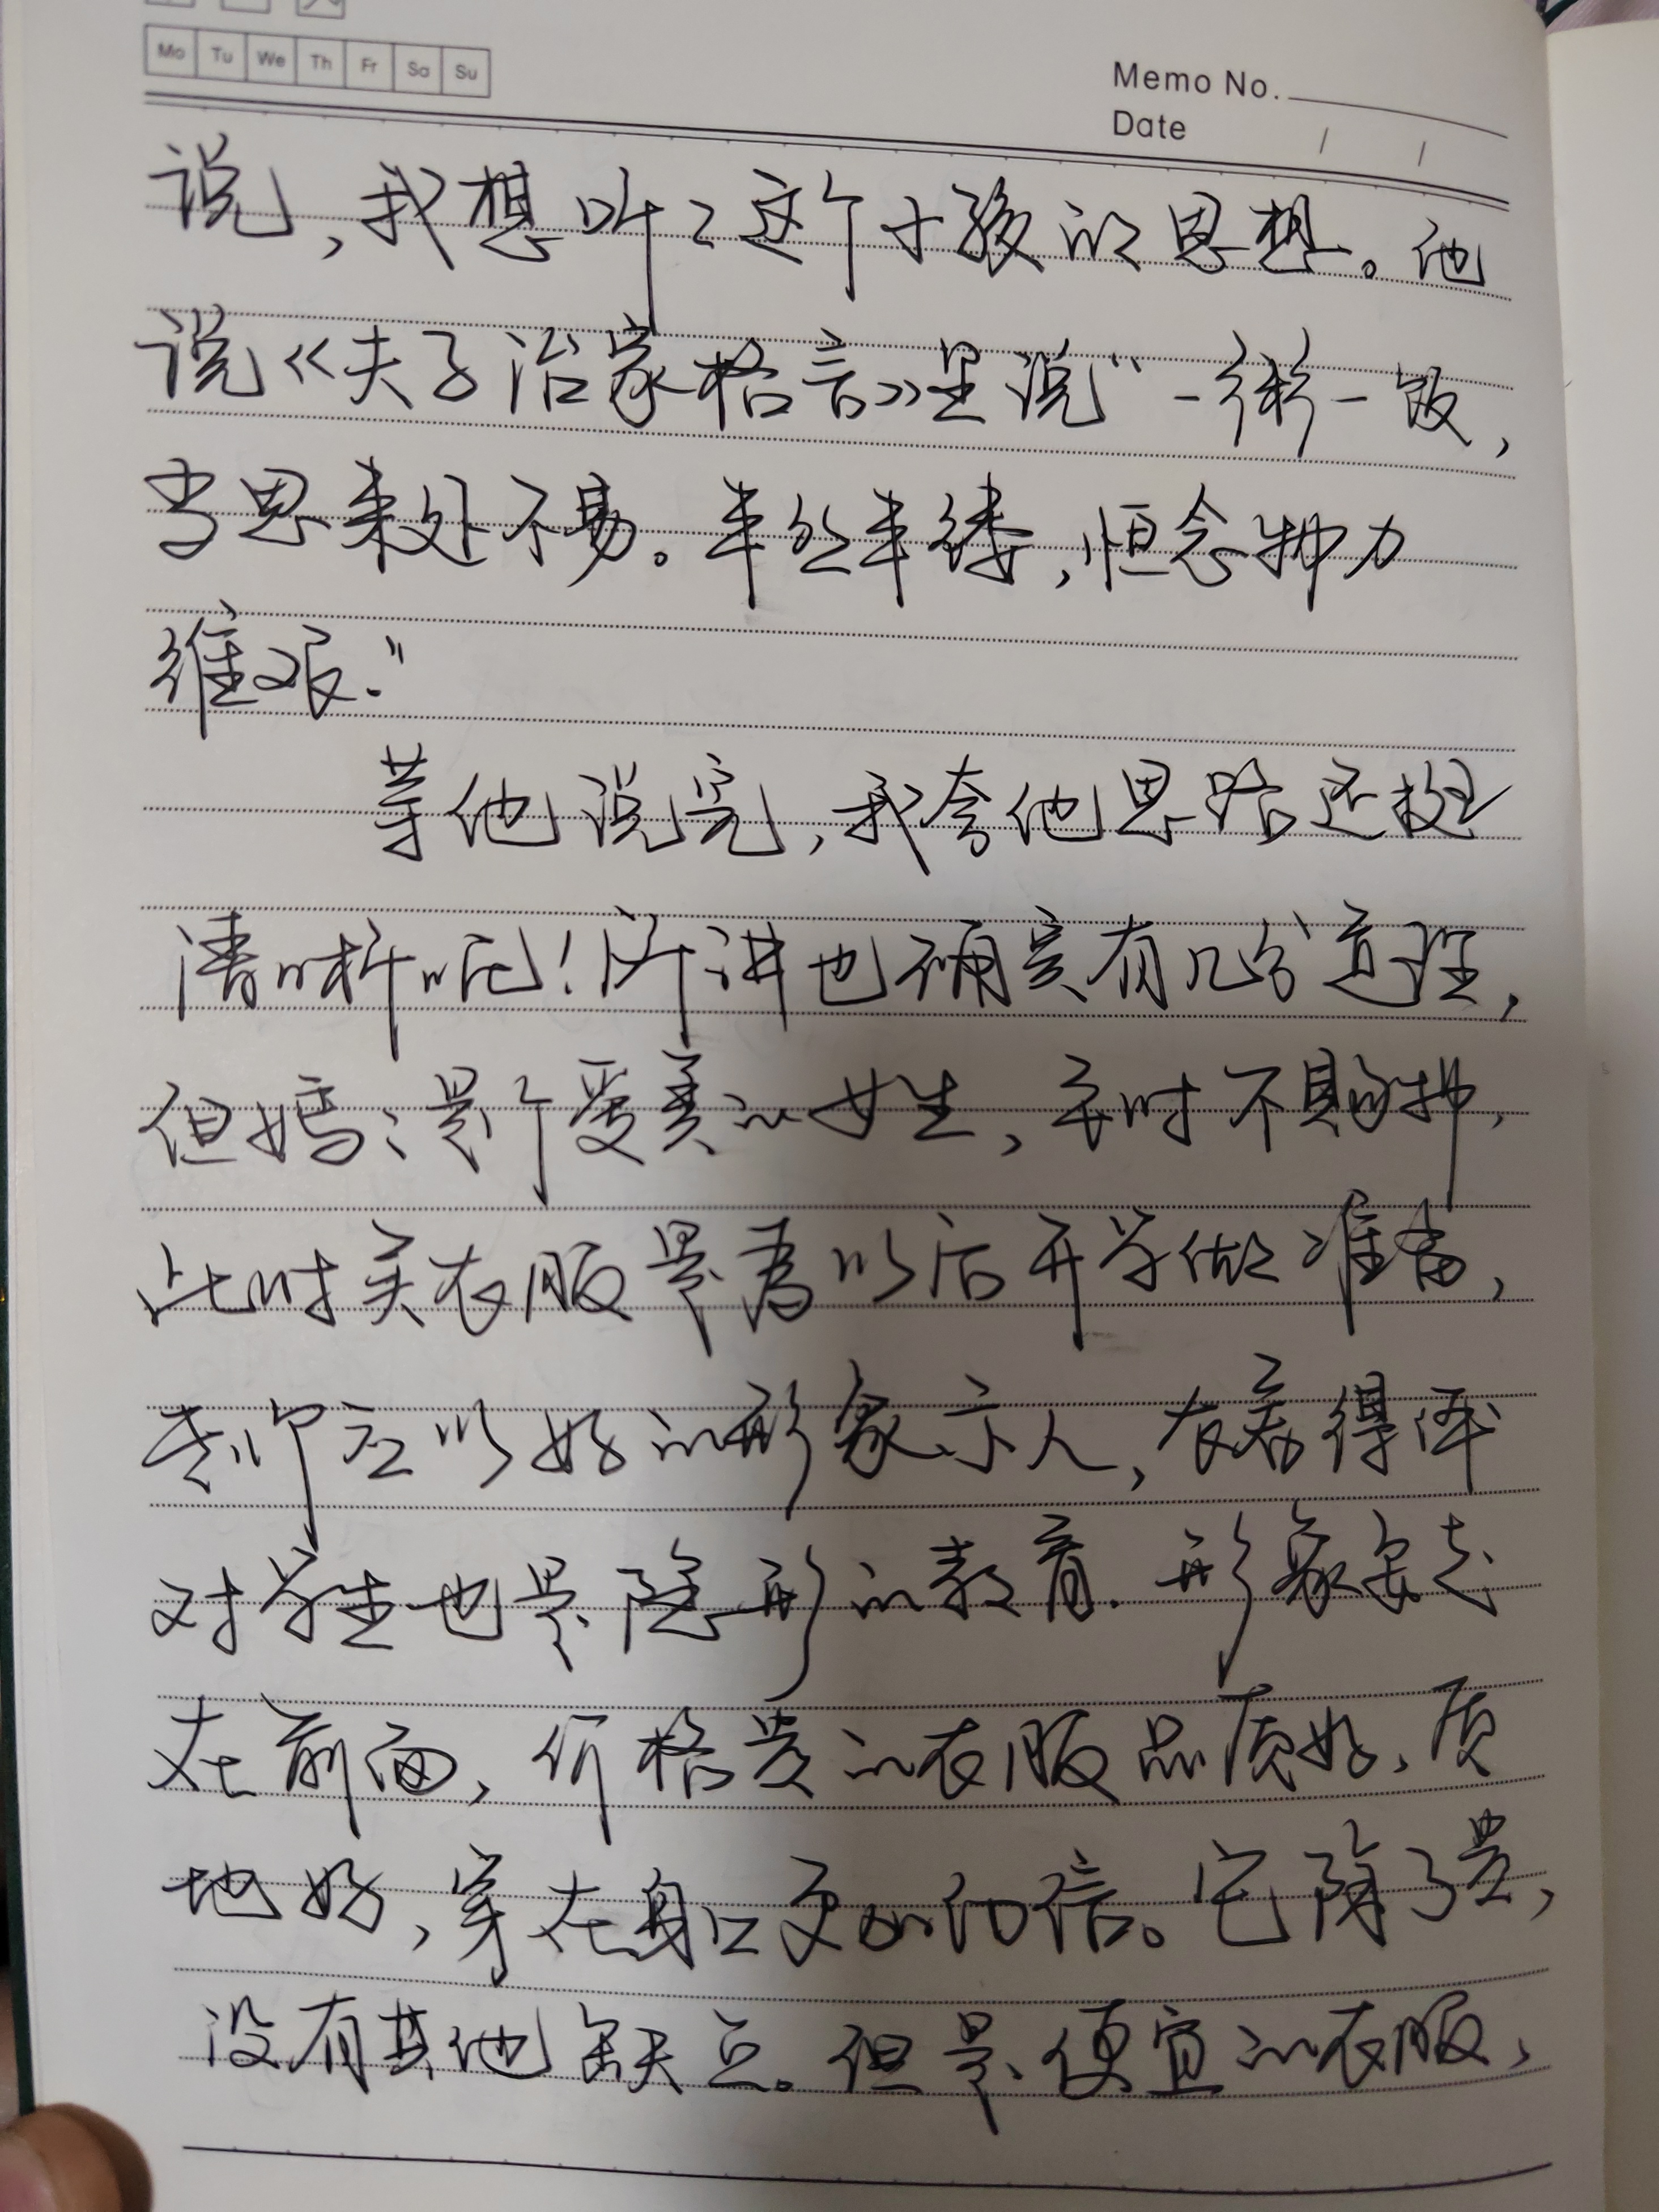 Mo Tu We Th Fr Sa Su
Memo No.
Date / /
说,我想听听这个小孩的思想。他
说《夫子治家格言》里说“一粥一饭,
当思来处不易。半丝半缕,恒念物力
维艰.”
等他说完,我夸他思路还挺
清晰呢!所讲也确实有几分道理,
但妈妈是个爱美的女生,平时不购物,
此时买衣服是为以后开学做准备,
老师应以好的形象示人,衣着得体
对学生也是隐形的教育.形象走
在前面,价格贵的衣服品质好、质
地好,穿在身上更加自信。它除了贵,
没有其他缺点。但是便宜的衣服,